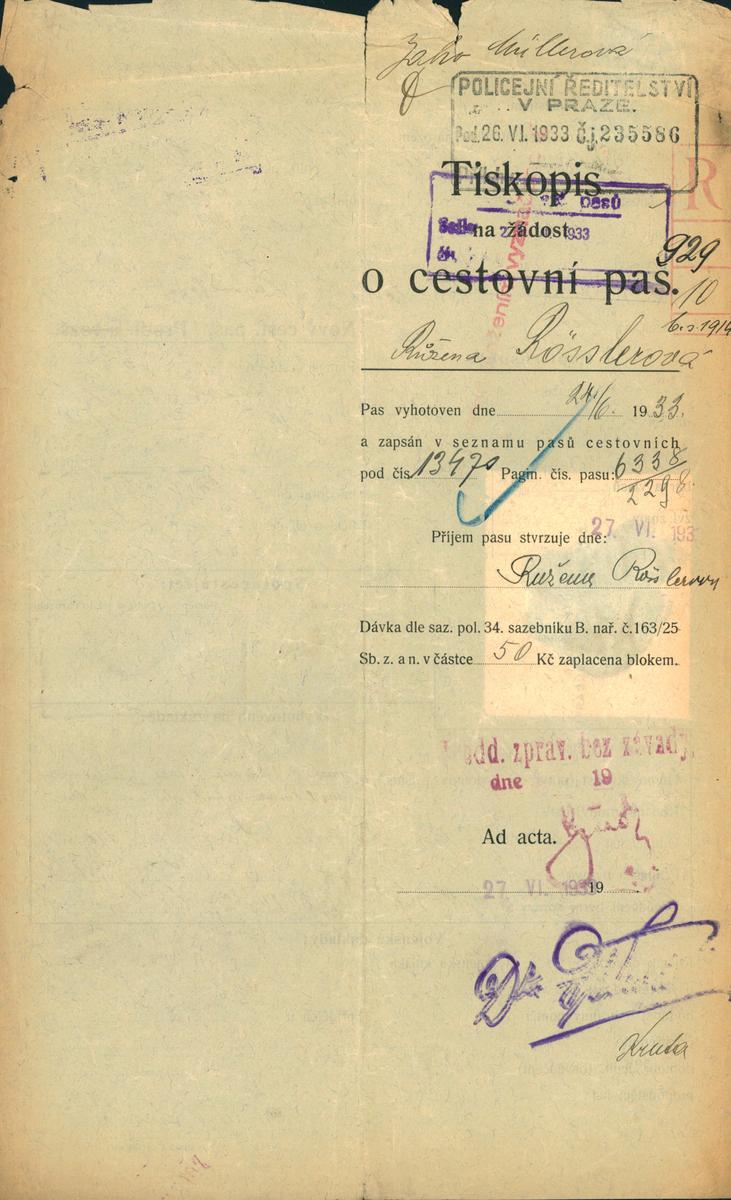 Müllerová
POLICEJNÍ ŘEDITELSTVÍ
V PRAZE.
Pod. 26. VI. 1933 Čj. 235586
Tiskopis
pasů
na žádost
1933
o cestovní pas.
929
10
6.s.1914
R
Růžena Rösslerová
Pas vyhotoven dne 24/6. 1933.
a zapsán v seznamu pasů cestovních
pod čís. 13470 Pagin. čís. pasu: 6338/
2298.
27. VI. 193
Příjem pasu stvrzuje dne:
Ružena Rösslerova
Dávka dle saz. pol. 34. sazebníku B. nař. č. 163/25
Sb. z. a n. v částce 50 Kč zaplacena blokem.
odd. zpráv. bez závady.
dne 19
Ad acta.
27. VI. 1933 19
Dr.
Kruta